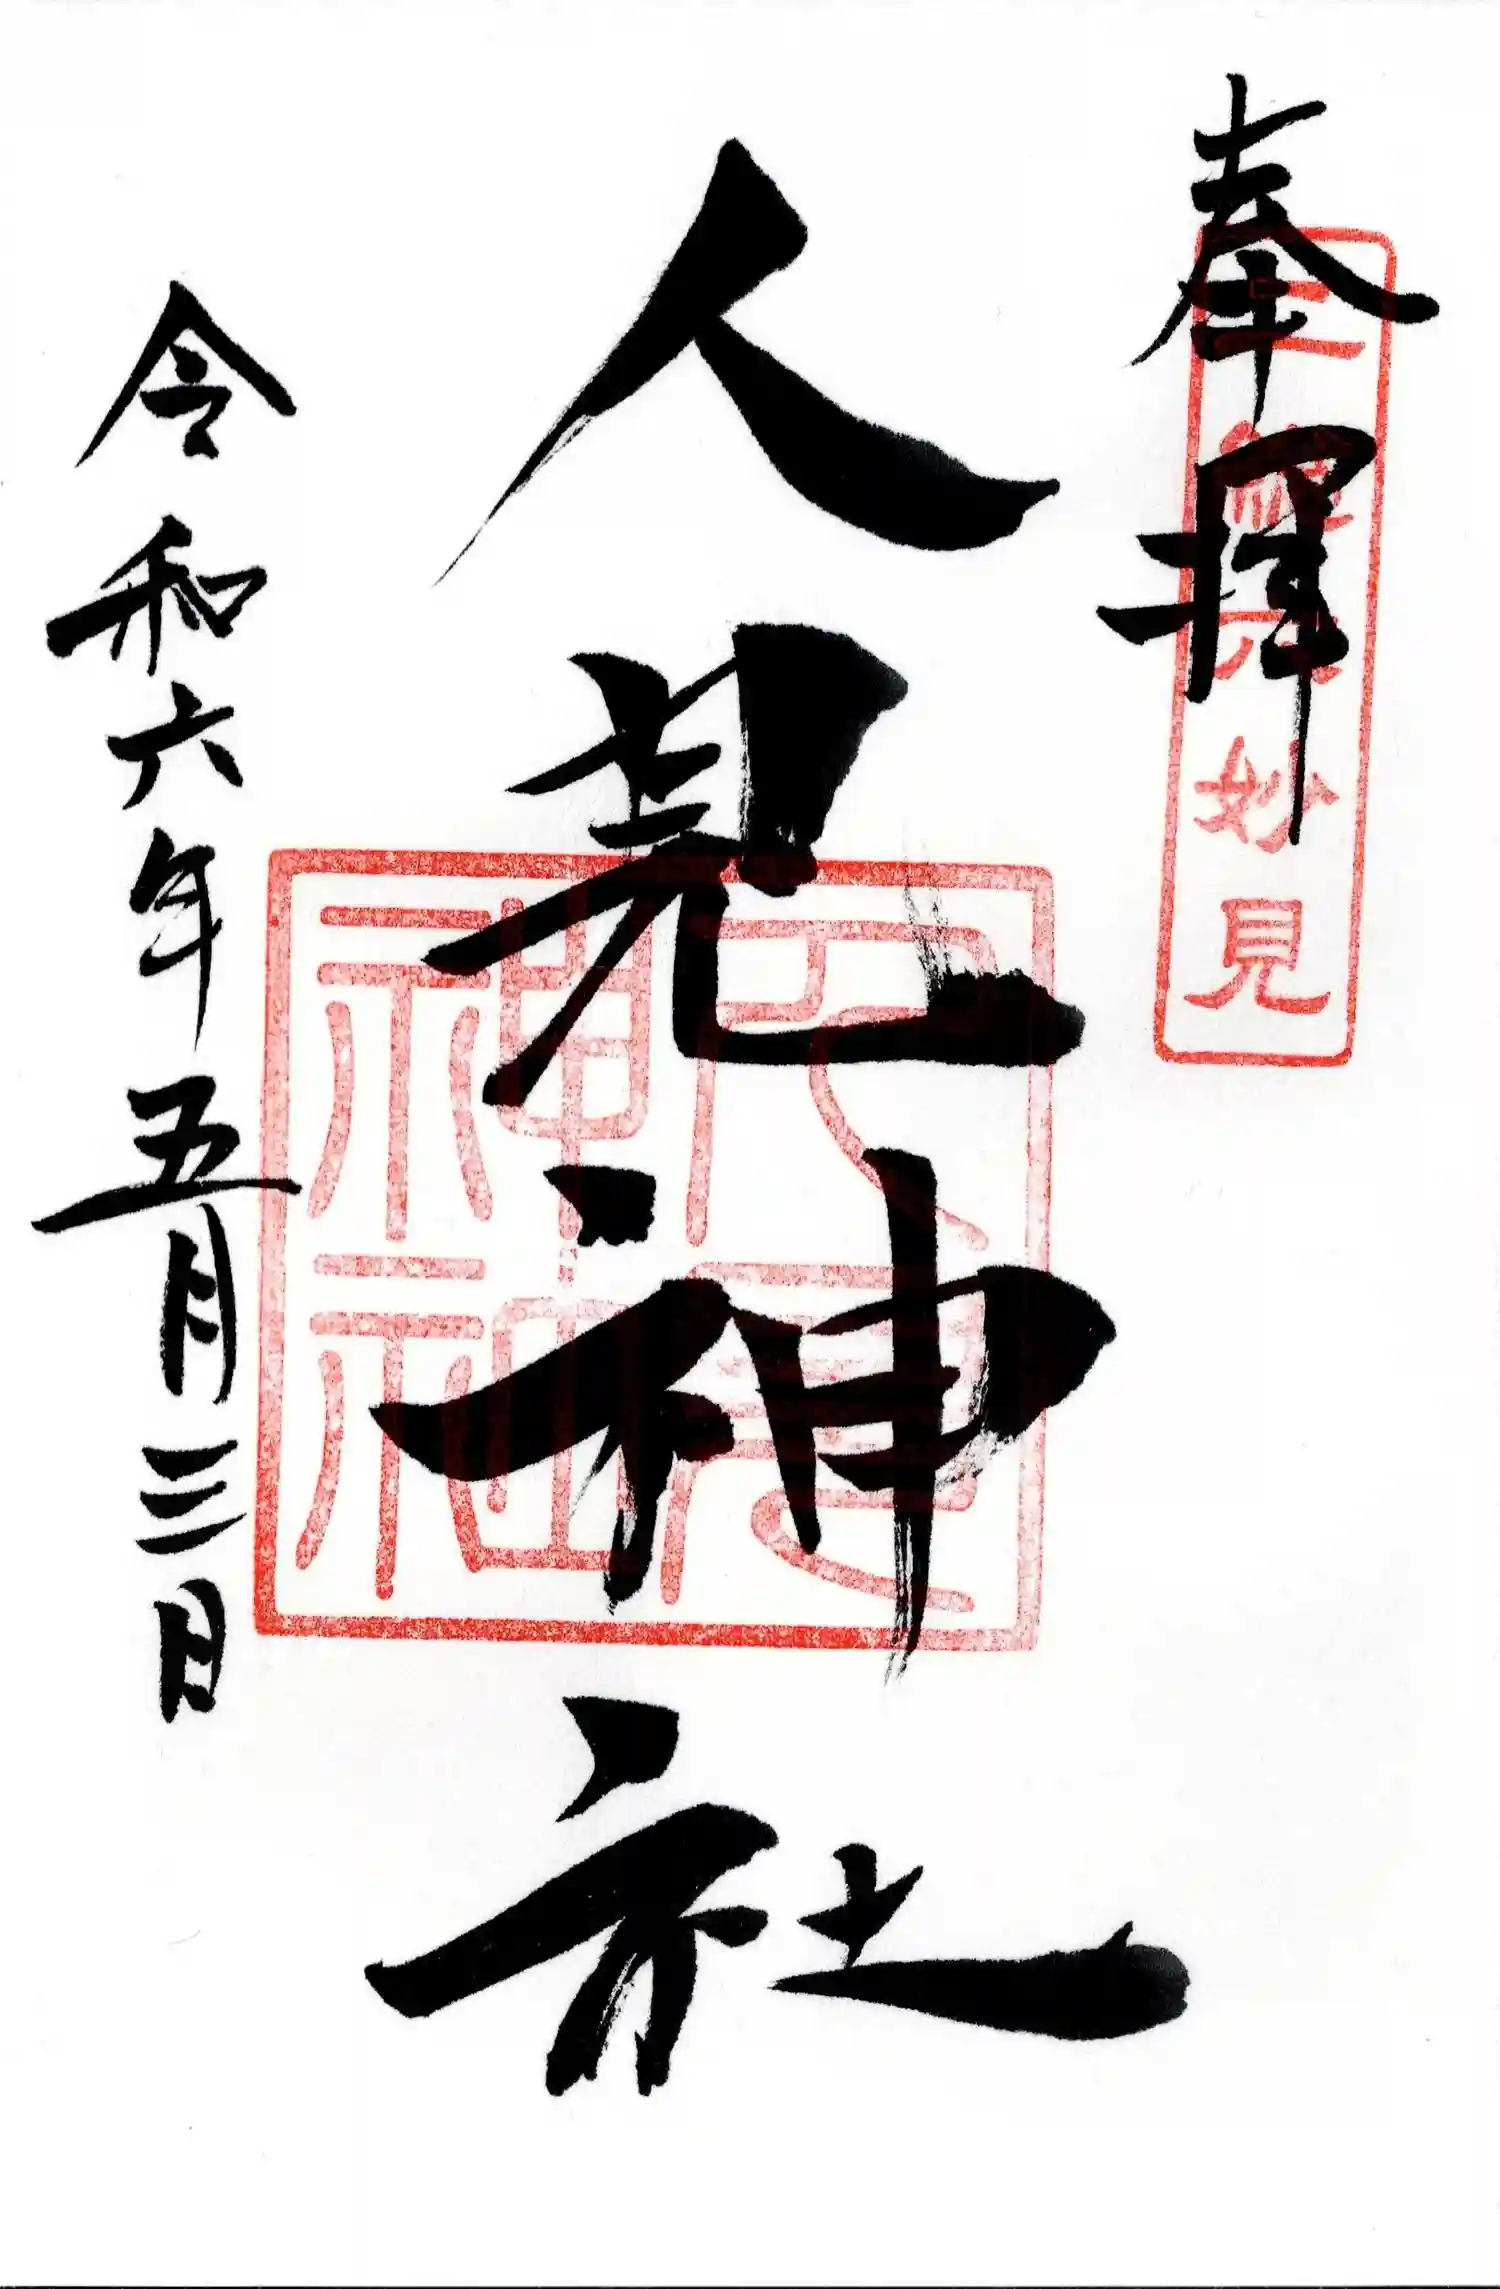 奉拝
妙見
人見神社
令和六年五月三日